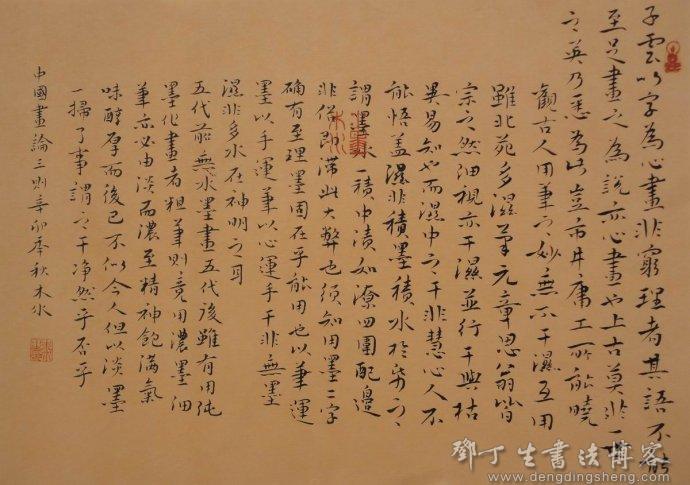 子雲以字為心畫非窮理者其語不能
至是畫之為說亦心畫也上古莫非一世
之英乃悉為此豈市井庸工所能曉
觀古人用筆之妙無不干濕互用
雖北苑多濕筆元章思翁皆
宗之然細視亦干濕並行干與枯
異易知也而濕中之干非慧心人不
能悟蓋濕非積墨積水於紙之
謂墨水一積中漬如潦四圍配邊
非俗即滯此大弊也須知用墨二字
確有至理墨固在乎能用也以筆運
墨以手運筆以心運手干非無墨
濕非多水在神明之耳
五代前無水墨畫五代後雖有用純
墨化畫者粗筆則竟用濃墨細
筆亦必由淡而濃至精神飽滿氣
味醇厚而後已不似今人但以淡墨
一掃了事謂之干净然乎否乎
中國畫論三則辛卯年秋木水
鄧丁生書法博客
www.dengdingsheng.com